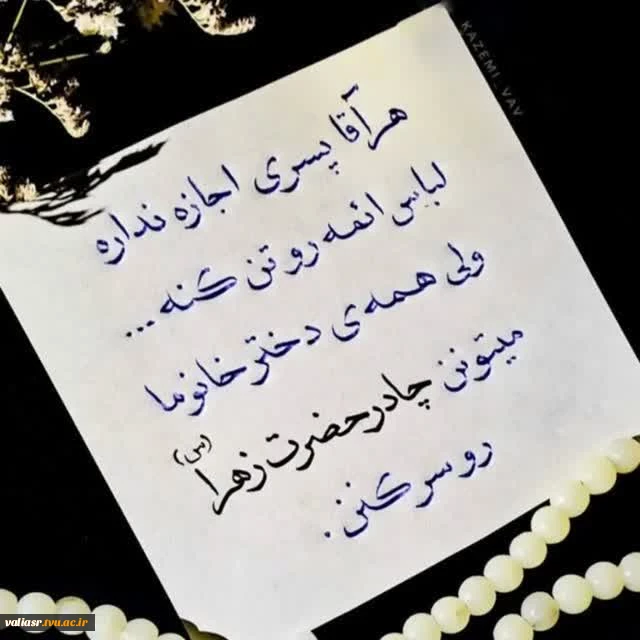 KAZEMI_VAV
هر آقا پسری اجازه نداره
لباس ائمه رو تن کنه ...
ولی همه ی دختر خانوما
میتونن چادر حضرت زهرا (س)
رو سر کنن.
valiasr.tvu.ac.ir